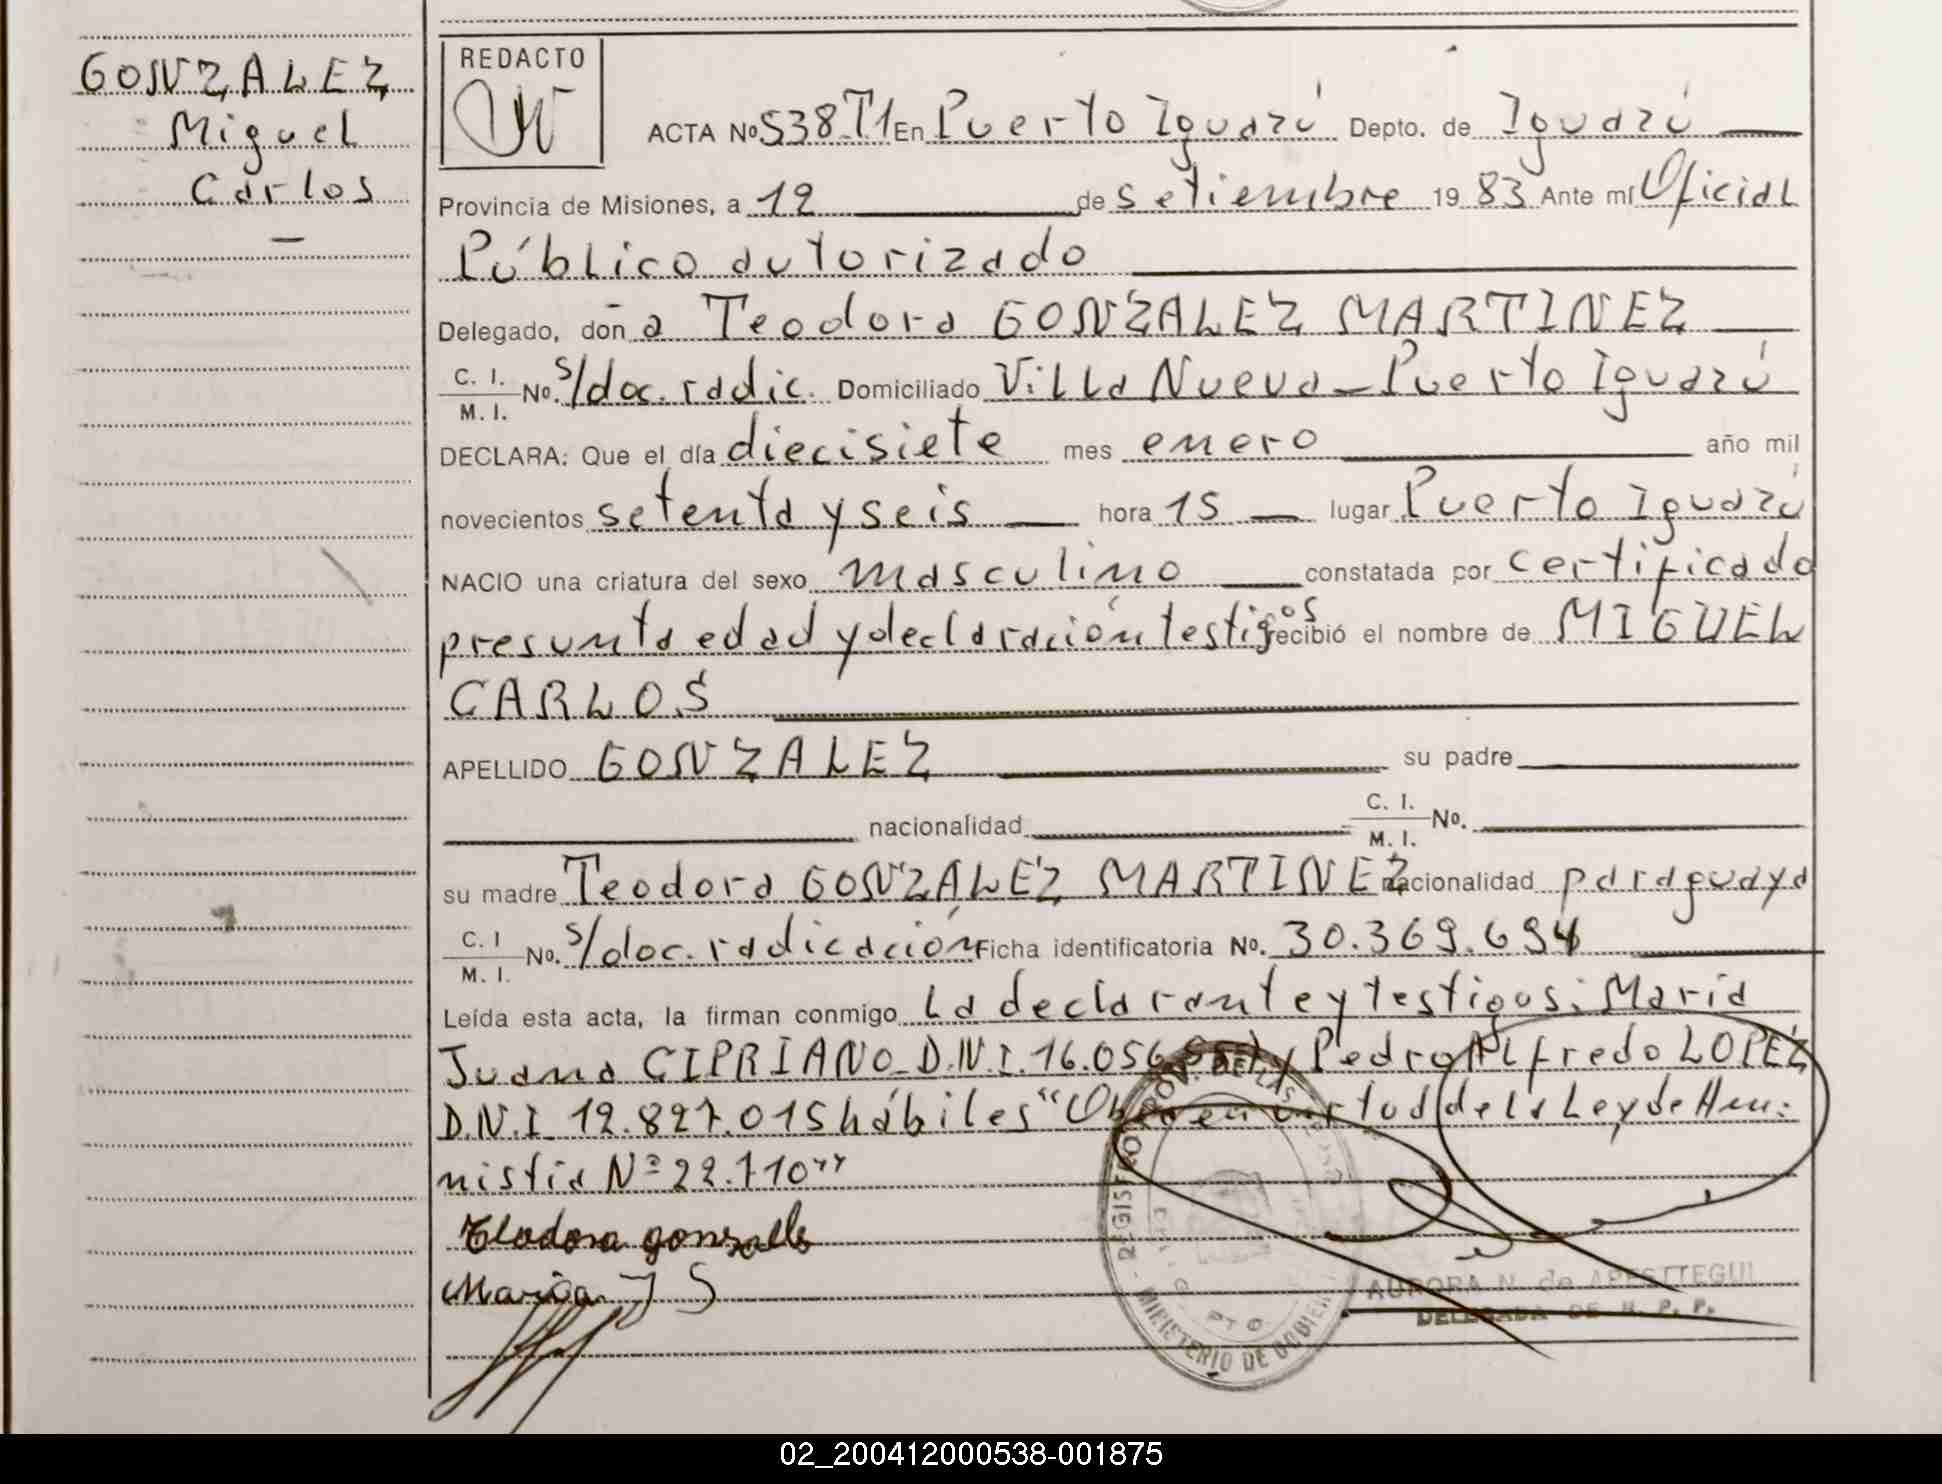 GONZALEZ
Miguel
Carlos
REDACTO
ACTA No 538 T1 En Puerto Iguazú Depto. de Iguazú
Provincia de Misiones, a 12 de setiembre 19 83 Ante mí Oficial
Público autorizado
Delegado, don a Teodora GONZALEZ MARTINEZ
C. I. M. I. No. s/doc. radic. Domiciliado Villa Nueva - Puerto Iguazú
DECLARA: Que el día diecisiete mes enero año mil
novecientos setenta y seis hora 15 lugar Puerto Iguazú
NACIO una criatura del sexo masculino constatada por certificado
presunta edad y declaración testigos recibió el nombre de MIGUEL
CARLOS
APELLIDO GONZALEZ su padre
nacionalidad C. I. M. I. No.
su madre Teodora GONZALEZ MARTINEZ nacionalidad paraguaya
C. I M. I. No. s/doc. radicación Ficha identificatoria No. 30.369.694
Leída esta acta, la firman conmigo La declarante y testigos: María
Juana CIPRIANO D.N.I. 16.056. y Pedro Alfredo LOPEZ
D.N.I. 12.827.015 hábiles "Obra en virtud de la Ley de Am:
nistia Nº 22.710"
Teodora gonzalez
Maria J S
REGISTRO PROV. DE LAS
MINISTERIO DE GOBIERNO
AURORA N. de APESTTEGUI
DELEGADA DE R. P. P.
02_200412000538-001875